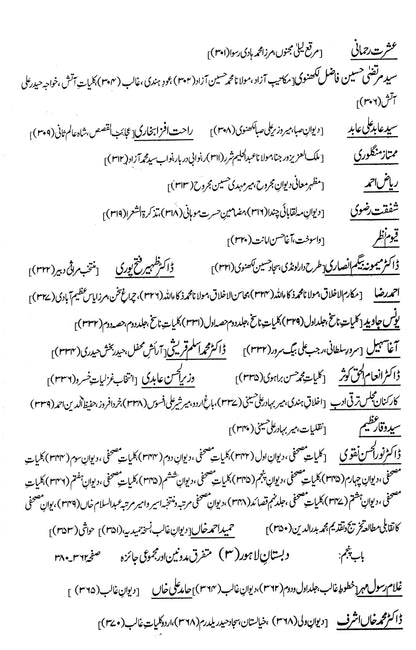 عشرت رحمانی [مرقع لیلیٰ مجنوں، مرزا محمد ہادی رسوا (۳۰۱)]
سید مرتضیٰ حسین فاضل لکھنوی [مکاتیب آزاد، مولانا محمد حسین آزاد (۳۰۲) عود ہندی، غالب (۳۰۴) کلیات آتش، خواجہ حیدر علی
آتش (۳۰۶)]
سید عابد علی عابد [دیوان صبا، میر وزیر علی صبا لکھنوی (۳۰۸)] راحت افزا بخاری [عجائب القصص، شاہ عالم ثانی (۳۰۹)]
ممتاز منگلوری [ملک العزیز ورجنا، مولانا عبدالحلیم شرر (۳۱۱) نوابی دربار، نواب سید محمد آزاد (۳۱۲)]
ریاض احمد [مظہر معانی دیوان مجروح، میر مہدی حسین مجروح (۳۱۳)]
شفقت رضوی [دیوان مہ لقا بائی چندا (۳۱۶) مضامین حسرت موہانی (۳۱۸) تذکرۃ الشعرا (۳۱۹)]
قیوم نظر [واسوخت، آغا حسن امانت (۳۲۰)]
ڈاکٹر میمونہ بیگم انصاری [طرح دار لونڈی، سجاد حسین لکھنوی (۳۲۱)] ڈاکٹر ظہیر فتح پوری [منتخب مراثی دبیر (۳۲۲)]
احمد رضا [مکارم الاخلاق، مولانا محمد ذکاءاللہ (۳۲۳) محاسن الاخلاق، مولانا محمد ذکاءاللہ (۳۲۶)، چراغ سخن، مرزا یاس عظیم آبادی (۳۲۷)]
یونس جاوید [کلیات ناسخ، جلد اول (۳۲۹) کلیات ناسخ، جلد دوم حصہ اول (۳۳۱) کلیات ناسخ، جلد دوم، حصہ دوم (۳۳۲)]
آغا سہیل [سرور سلطانی، رجب علی بیگ سرور (۳۳۲)] ڈاکٹر محمد اسلم قریشی [آرائش محفل، حیدر بخش حیدری (۳۳۴)]
ڈاکٹر انعام الحق کوثر [کلیات محمد حسن براہوی (۳۳۵)] وزیر الحسن عابدی [انتخاب غزلیات خسرو (۳۳۶)]
کارکنان مجلس ترقی ادب [اخلاق ہندی، میر بہادر علی حسینی (۳۳۷)، باغ اردو، میر شیر علی افسوس (۳۳۸) خرد افروز، حفیظ الدین احمد (۳۳۹)]
سید وقار عظیم [نقلیات، میر بہادر علی حسینی (۳۴۰)]
ڈاکٹر نور الحسن نقوی [کلیات مصحفی، دیوان اول (۳۴۲) کلیات مصحفی، دیوان دوم (۳۴۲) کلیات مصحفی، دیوان سوم (۳۴۴) کلیات
مصحفی، دیوان چہارم (۳۴۵) کلیات مصحفی، دیوان پنجم (۳۴۵) کلیات مصحفی، دیوان ششم (۳۴۵) کلیات مصحفی، دیوان ہفتم (۳۴۶) کلیات
مصحفی، دیوان ہشتم (۳۴۷) کلیات مصحفی، جلد نہم قصائد (۳۴۸) دیوان مصحفی مرتبہ و منتخبہ اسیر و امیر مرتبہ عبدالسلام خاں (۳۴۹)، دیوان مصحفی
کا تقابلی مطالعہ تخریج و تقدیم محمد بدرالدین (۳۵۰)] حمید احمد خاں [دیوان غالب، نسخۂ حمیدیہ (۳۵۱)] حواشی (۳۵۳)]
باب پنجم: دبستان لاہور (۳) متفرق مدونین اور مجموعی جائزہ صفحہ ۳۶۲-۳۸۰
غلام رسول مہر [خطوط غالب، جلد اول و دوم (۳۶۲)، دیوان غالب (۳۶۴)] حامد علی خاں [دیوان غالب (۳۶۵)]
ڈاکٹر محمد خاں اشرف [دیوان ولی (۳۶۸)، خیالستان، سجاد حیدر یلدرم (۳۶۸)، اردو کلیات غالب (۳۷۰)]